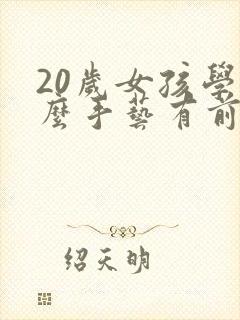 20歲女孩學
麼手藝有前
紹天明